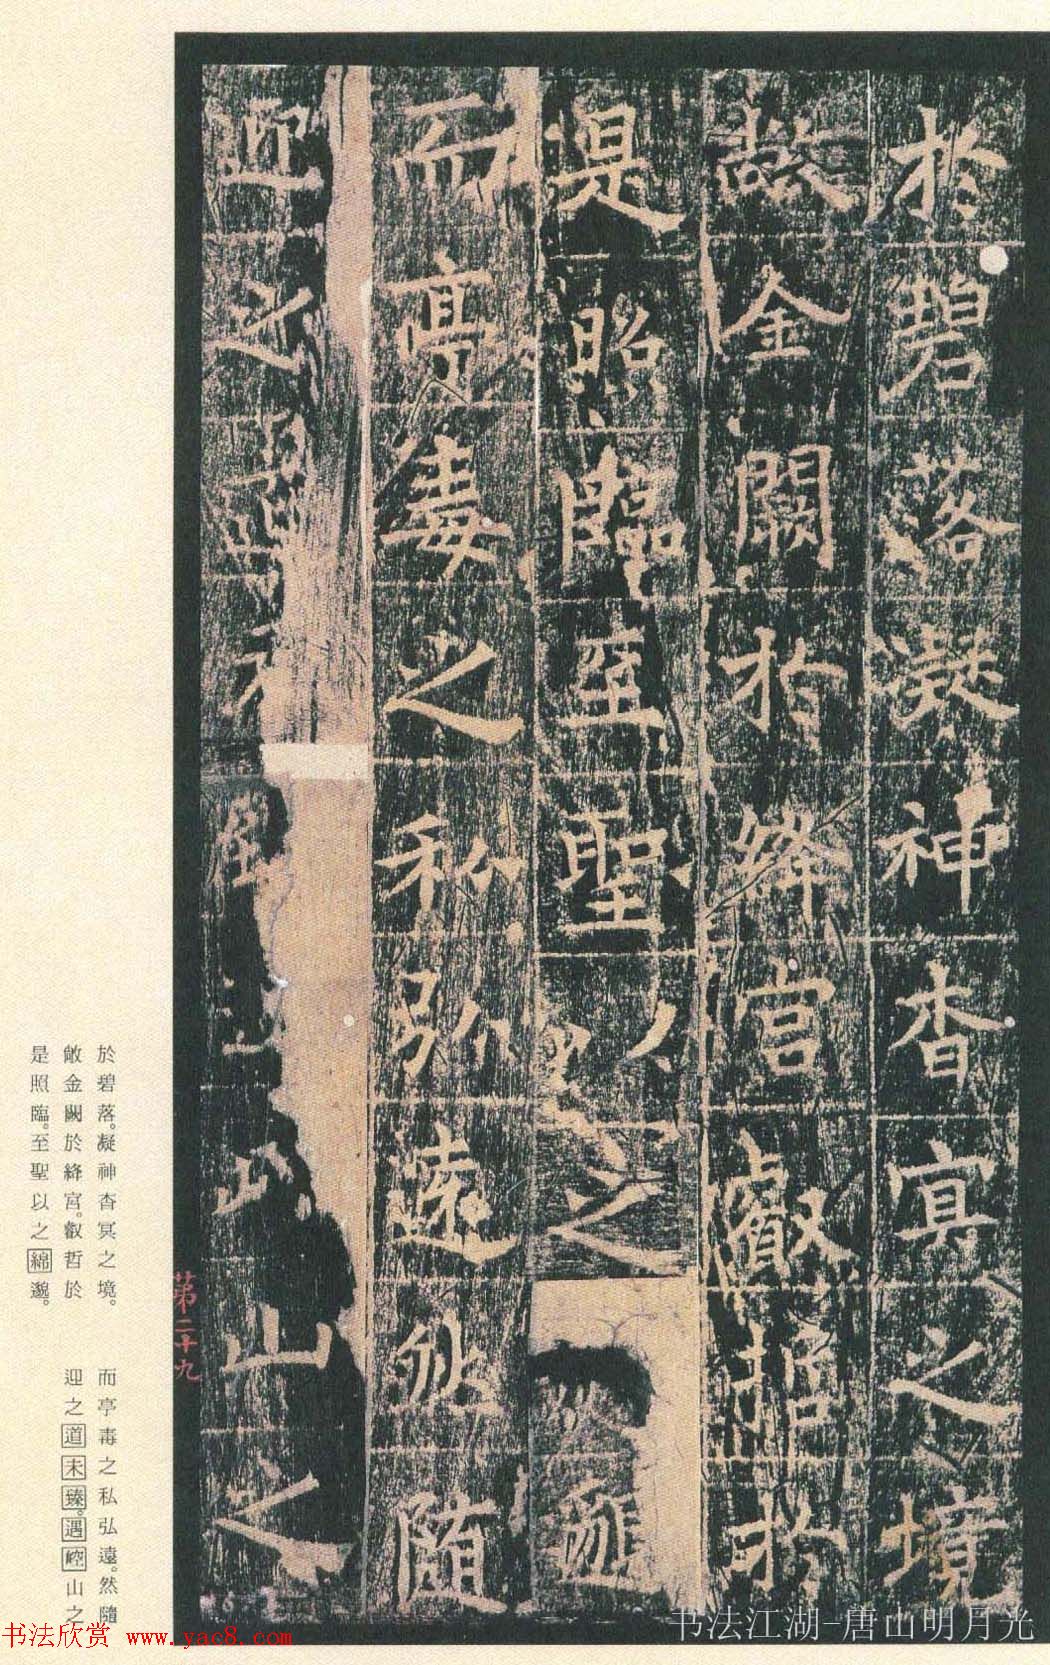 於碧落凝神杳冥之境
敞金闕於絳宮叡哲於
是照臨至聖以之 邈
而亭毒之私弘遠然隨
迎之道未 山之
第二十九
於碧落。凝神杳冥之境。
敞金闕於絳宮。叡哲於
是照臨。至聖以之綿邈。
而亭毒之私弘遠。然隨
迎之道未臻。遇崆山之
书法欣赏 www.yac8.com
书法江湖-唐山明月光